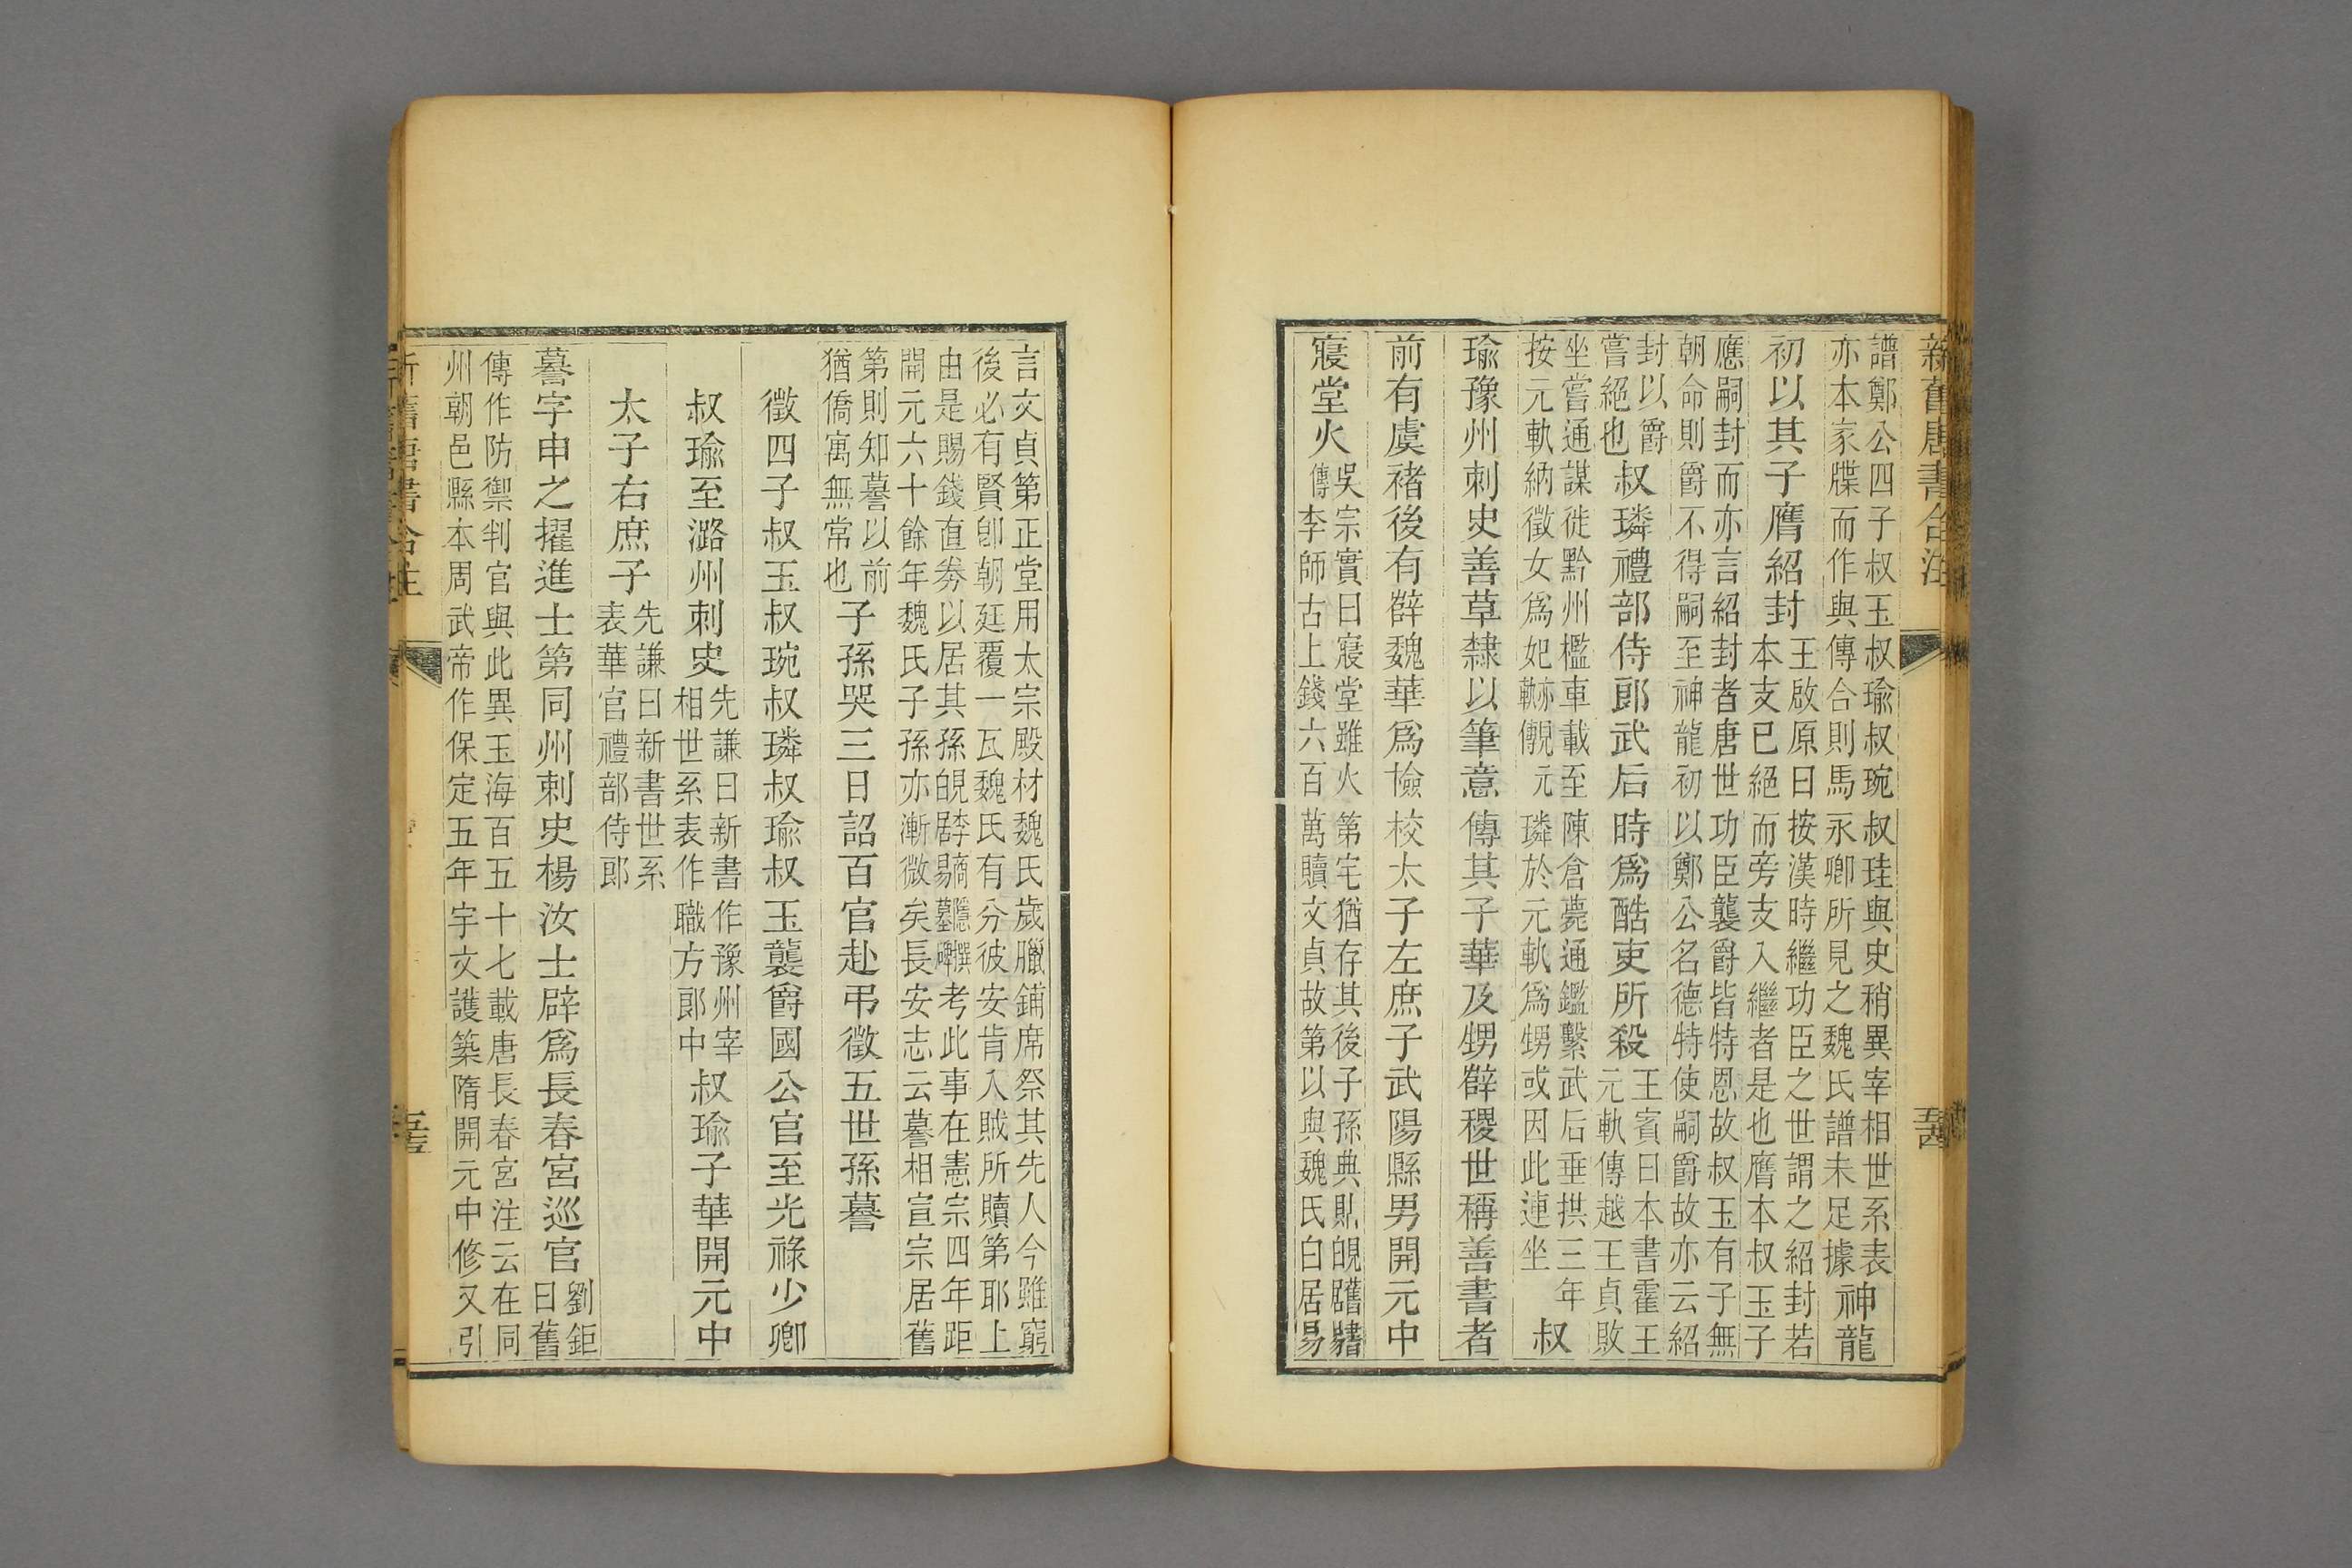 新舊唐書合注
譜鄭公四子叔玉叔瑜叔琬叔珪與史稍異宰相世系表
亦本家牒而作與傳合則馬永卿所見之魏氏譜未足據神龍
初以其子膺紹封
王啟原曰按漢時繼功臣之世謂之紹封若
本支已絕而旁支入繼者是也膺本叔玉子
應嗣封而亦言紹封者唐世功臣襲爵皆特恩故叔玉有子無
朝命則爵不得嗣至神龍初以鄭公名德特使嗣爵故亦云紹
封以爵
嘗絕也
叔璘禮部侍郎武后時爲酷吏所殺
王賓曰本書霍王
元軌傳越王貞敗
坐嘗通謀徙黔州檻車載至陳倉薨通鑑繫武后垂拱三年
按元軌納徵女爲妃亦見軌傳元璘於元軌爲甥或因此連坐
叔
瑜豫州刺史善草隸以筆意傳其子華及甥薛稷世稱善書者
前有虞褚後有薛魏華爲檢校太子左庶子武陽縣男開元中
寢堂火
吳宗實曰寢堂雖火第宅猶存其後子孫典貼
傳李師古上錢六百萬贖文貞故第以與魏氏白居易
言文貞第正堂用太宗殿材魏氏歲臘鋪席祭其先人今雖窮
後必有賢卽朝廷覆一瓦魏氏有分彼安肯入賊所贖第耶上
由是賜錢直券以居其孫見李商隱撰白居易墓碑考此事在憲宗四年距
開元六十餘年魏氏子孫亦漸微矣長安志云謩相宣宗居舊
第則知謩以前
猶僑寓無常也
子孫哭三日詔百官赴弔徵五世孫謩
徵四子叔玉叔琬叔璘叔瑜叔玉襲爵國公官至光祿少卿
叔瑜至潞州刺史
先謙曰新書作豫州宰
相世系表作職方郎中
叔瑜子華開元中
太子右庶子
先謙曰新書世系
表華官禮部侍郎
謩字申之擢進士第同州刺史楊汝士辟爲長春宮巡官
劉鉅
曰舊
傳作防禦判官與此異玉海百五十七載唐長春宮注云在同
州朝邑縣本周武帝作保定五年宇文護築隋開元中修又引
新舊唐書合注